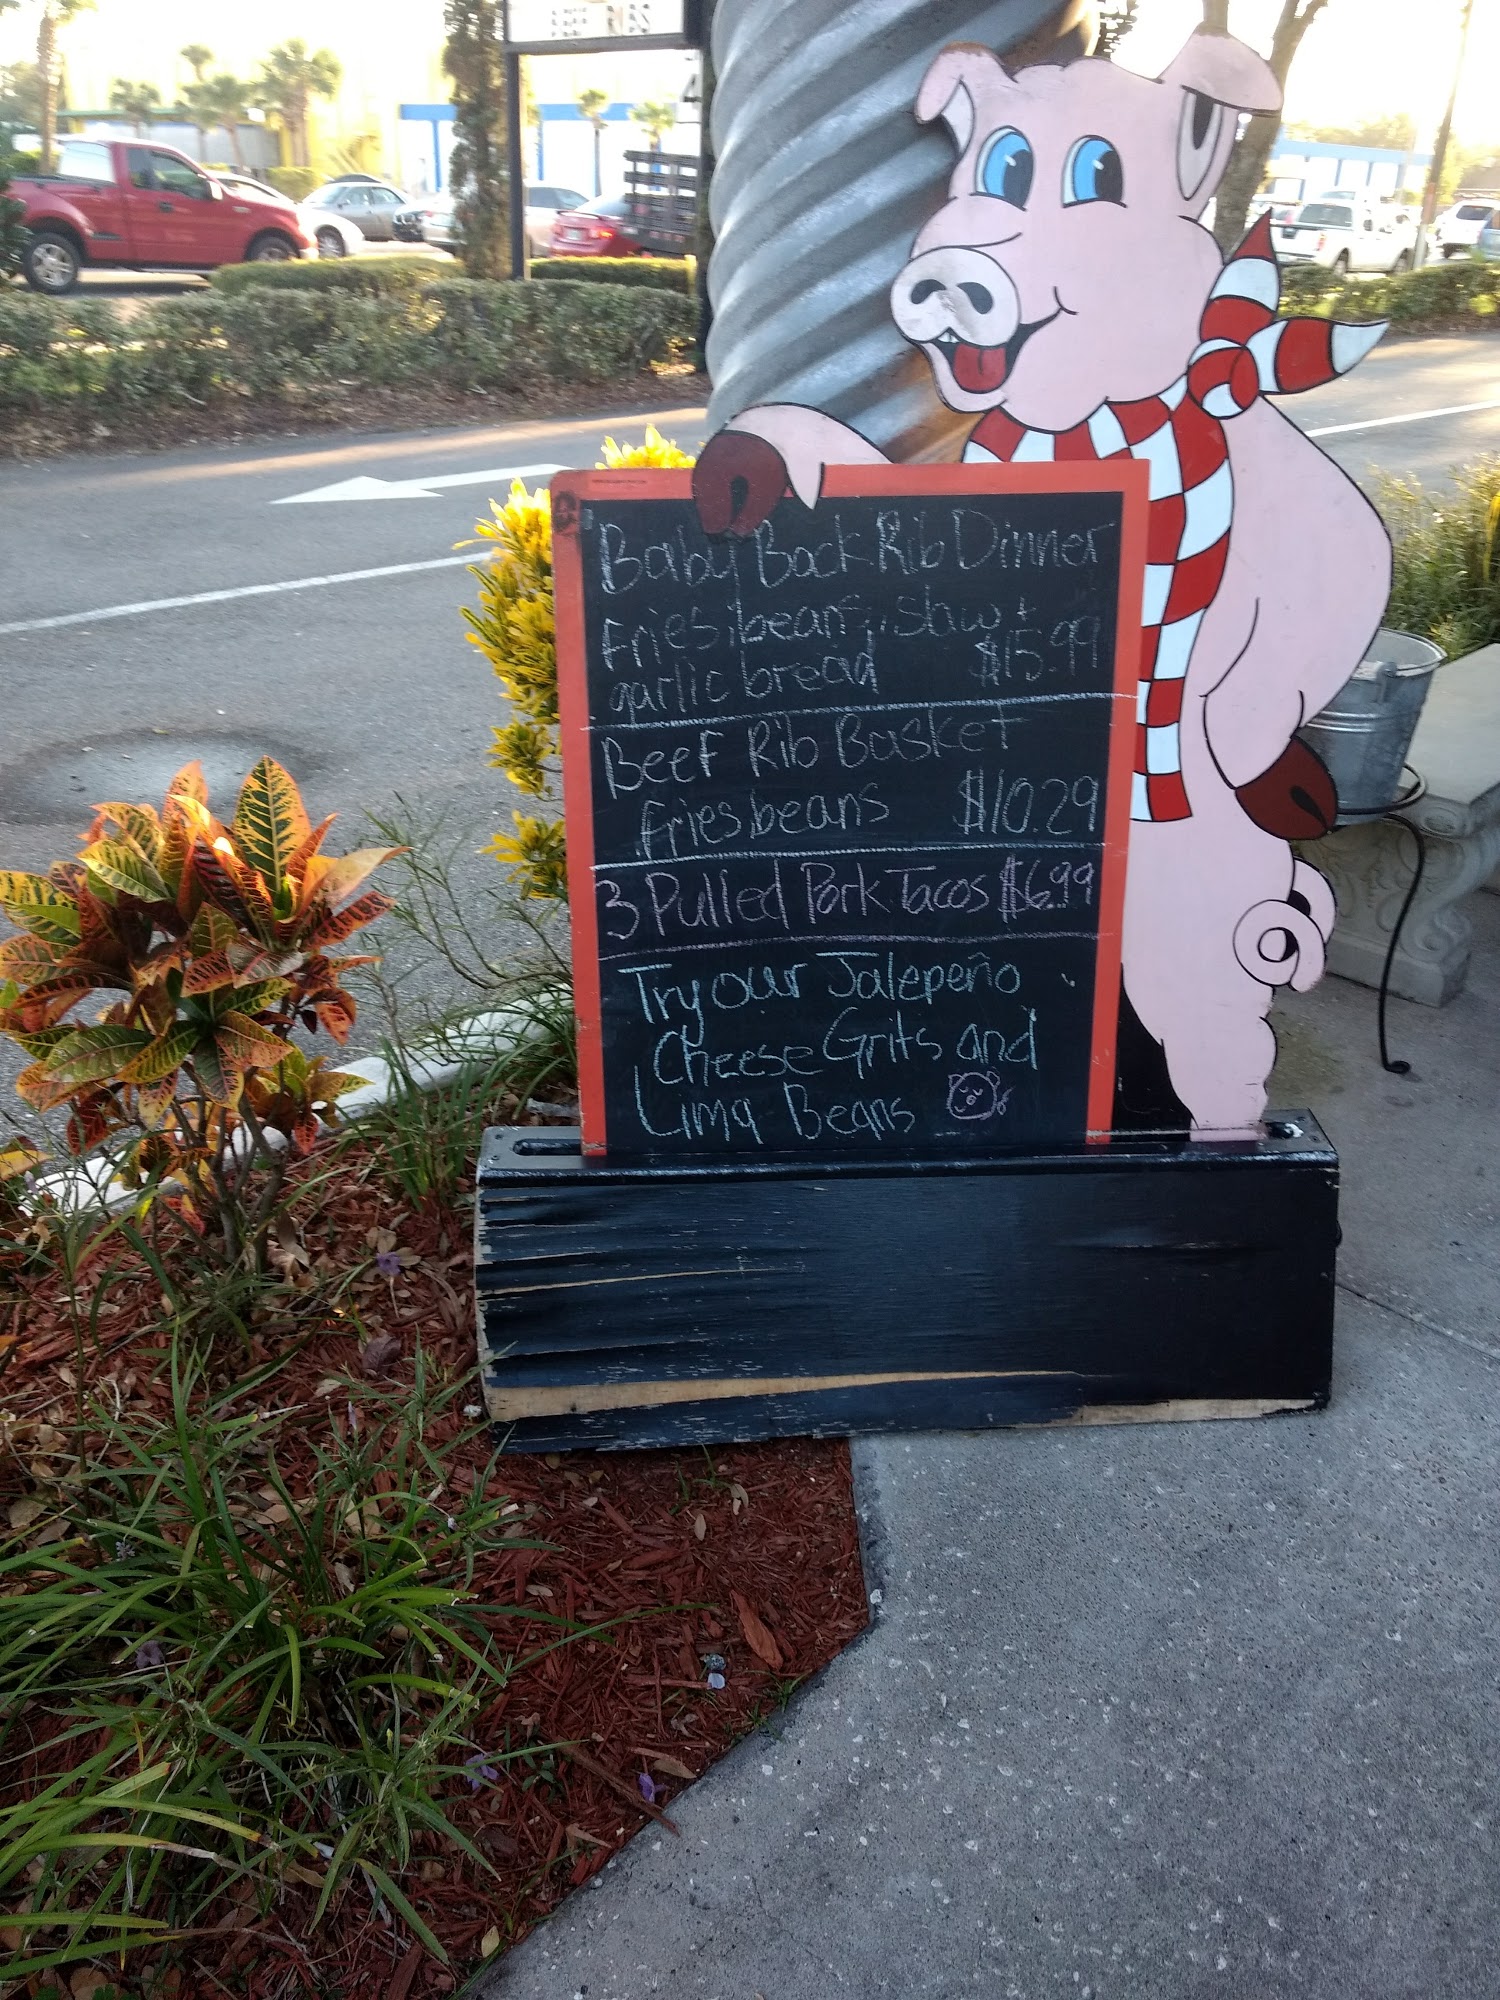 Baby Back Rib Dinner
Fries, beans, slaw +
garlic bread $15.99
Beef Rib Basket
Fries beans $10.29
3 Pulled Pork Tacos $6.99
Try our Jalepeño
Cheese Grits and
Lima Beans